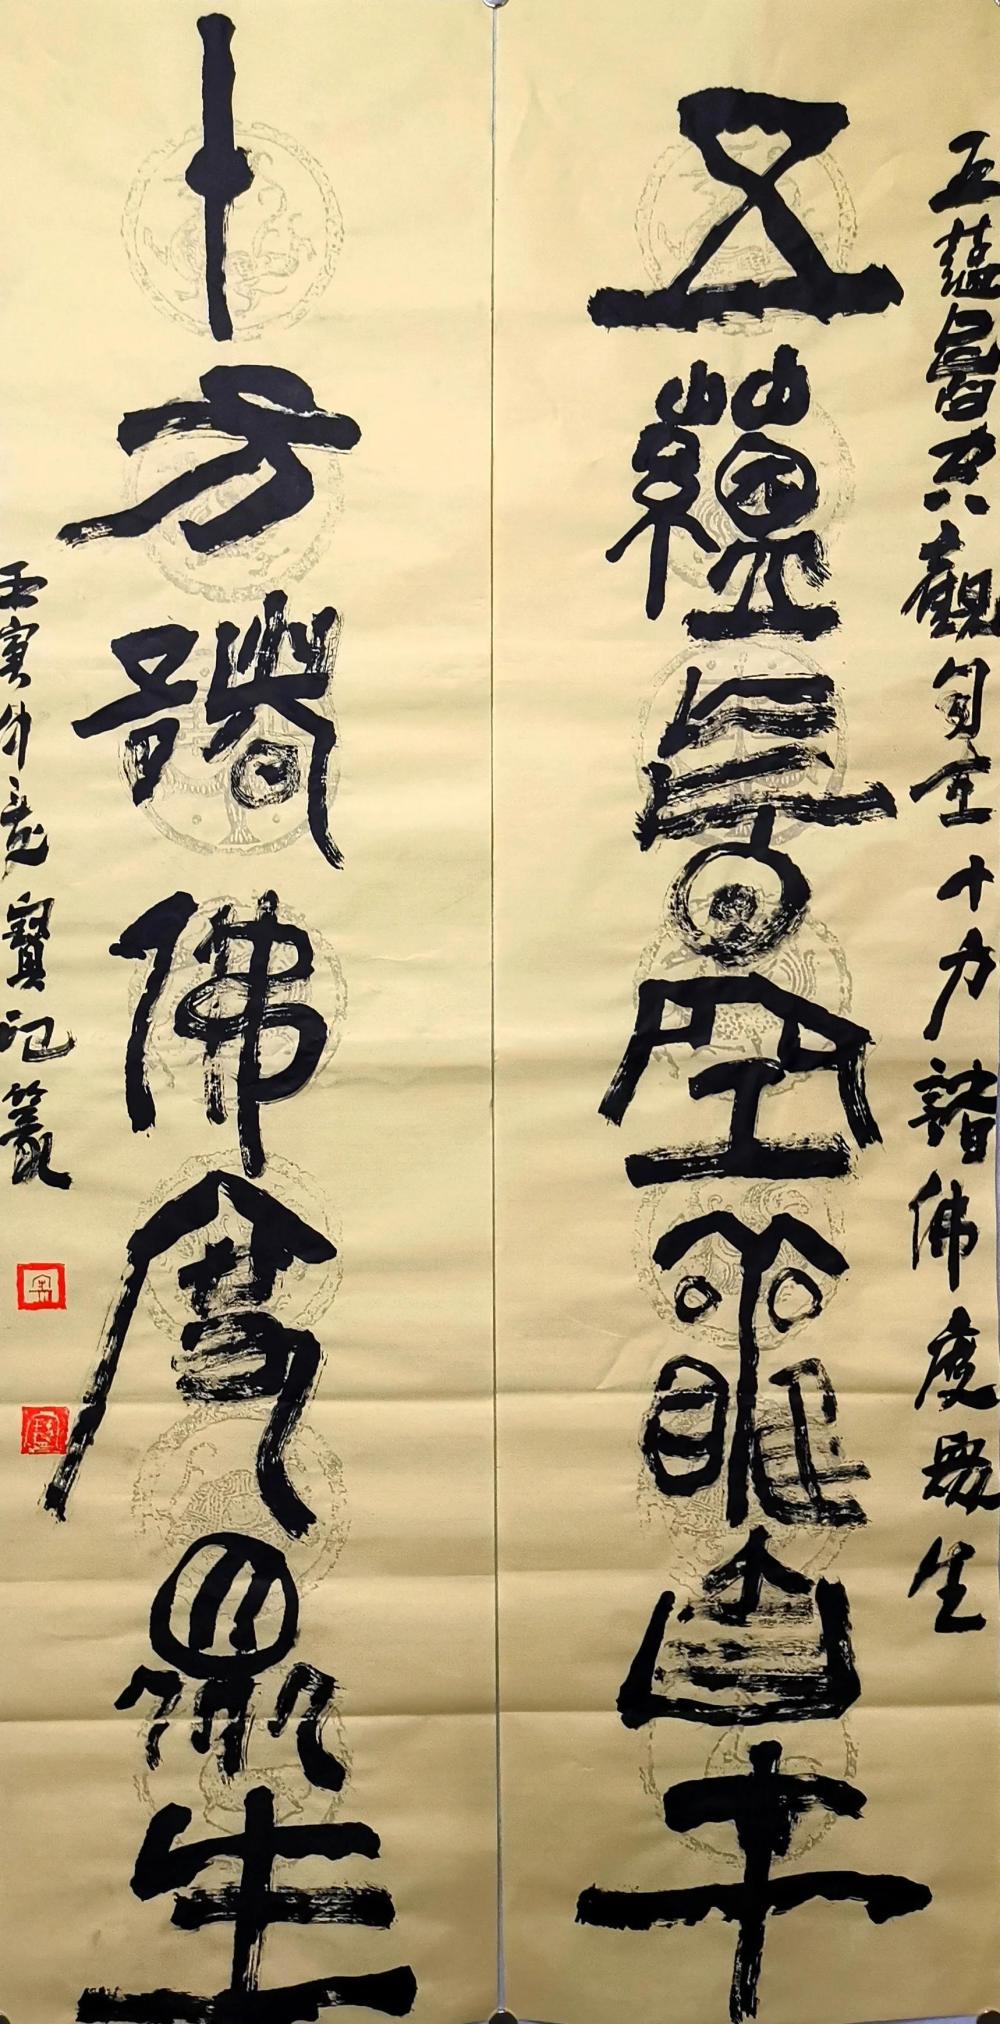 五蘊皆空觀自在十方諸佛度眾生
五蘊皆空觀自在
十方諸佛度眾生
壬寅寶記篆